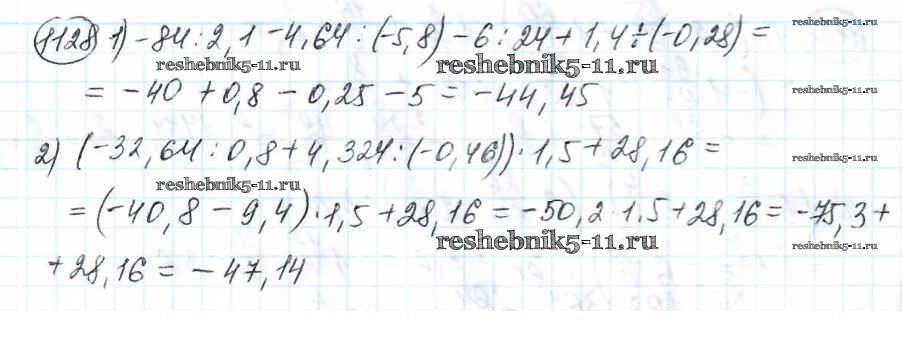 1128 1) -84:2,1-4,64:(-5,8)-6:24+1,4÷(-0,28)=
reshebnik5-11.ru
reshebnik5-11.ru
reshebnik5-11.ru
= -40 +0,8 - 0,25 - 5 = -44,45
reshebnik5-11.ru
2) (-32,64:0,8+4,324:(-0,46))·1,5+28,16=
reshebnik5-11.ru
reshebnik5-11.ru
=(-40,8-9,4)·1,5+28,16=-50,2·1,5+28,16=-75,3+
reshebnik5-11.ru
reshebnik5-11.ru
+28,16=-47,14